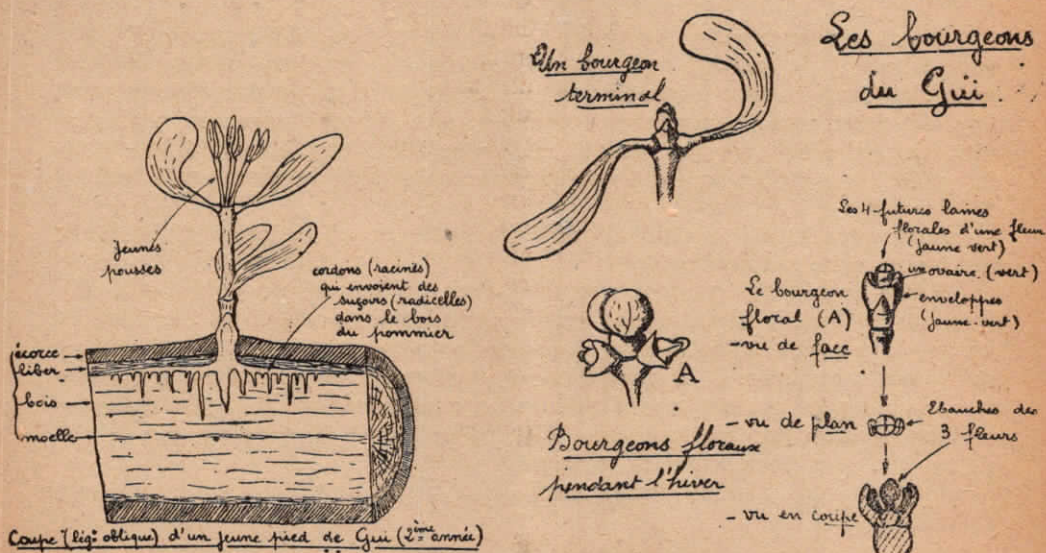 Les bourgeons
du Gui.
Un bourgeon
terminal
Jeunes
pousses
cordons (racines)
qui envoient des
suçoirs (radicelles)
dans le bois
du pommier
écorce
liber
bois
moelle
Coupe (légt oblique) d'un jeune pied de Gui (2ème année)
A
Bourgeons floraux
pendant l'hiver
Les 4 futures lames
florales d'une fleur
(jaune vert)
un ovaire (vert)
enveloppes
(jaune-vert)
Le bourgeon
floral (A)
- vu de face
- vu de plan
Ebauches des
3 fleurs
- vu en coupe